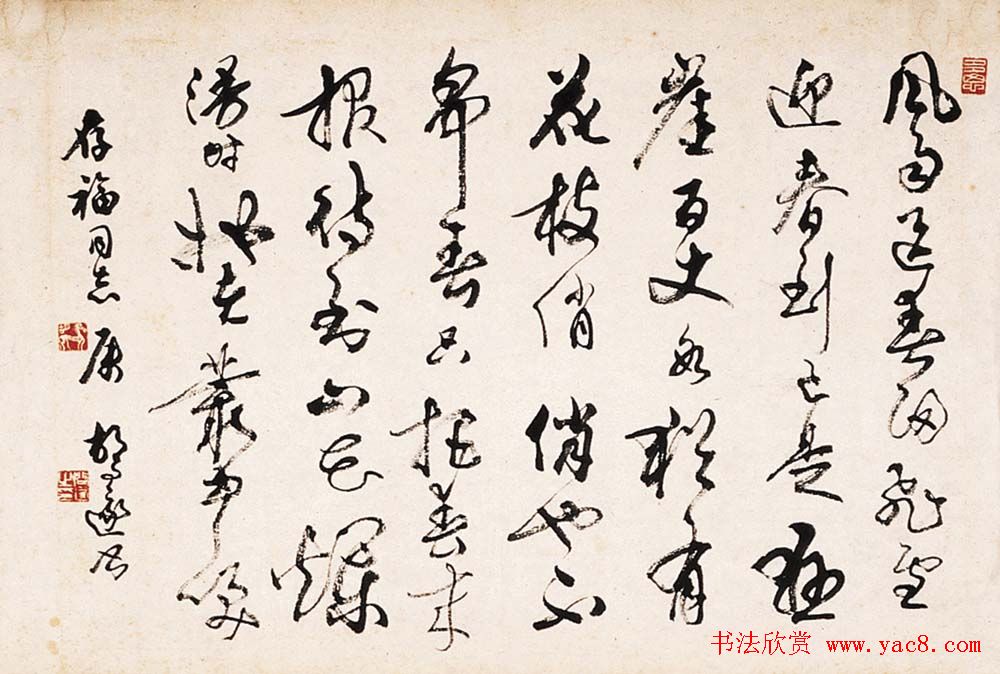 風雨送春歸飛雪
迎春到已是懸
崖百丈冰猶有
花枝俏俏也不
爭春只把春來
報待到山花爛
漫时她在叢中笑
存福同志属
书法欣赏 www.yac8.com